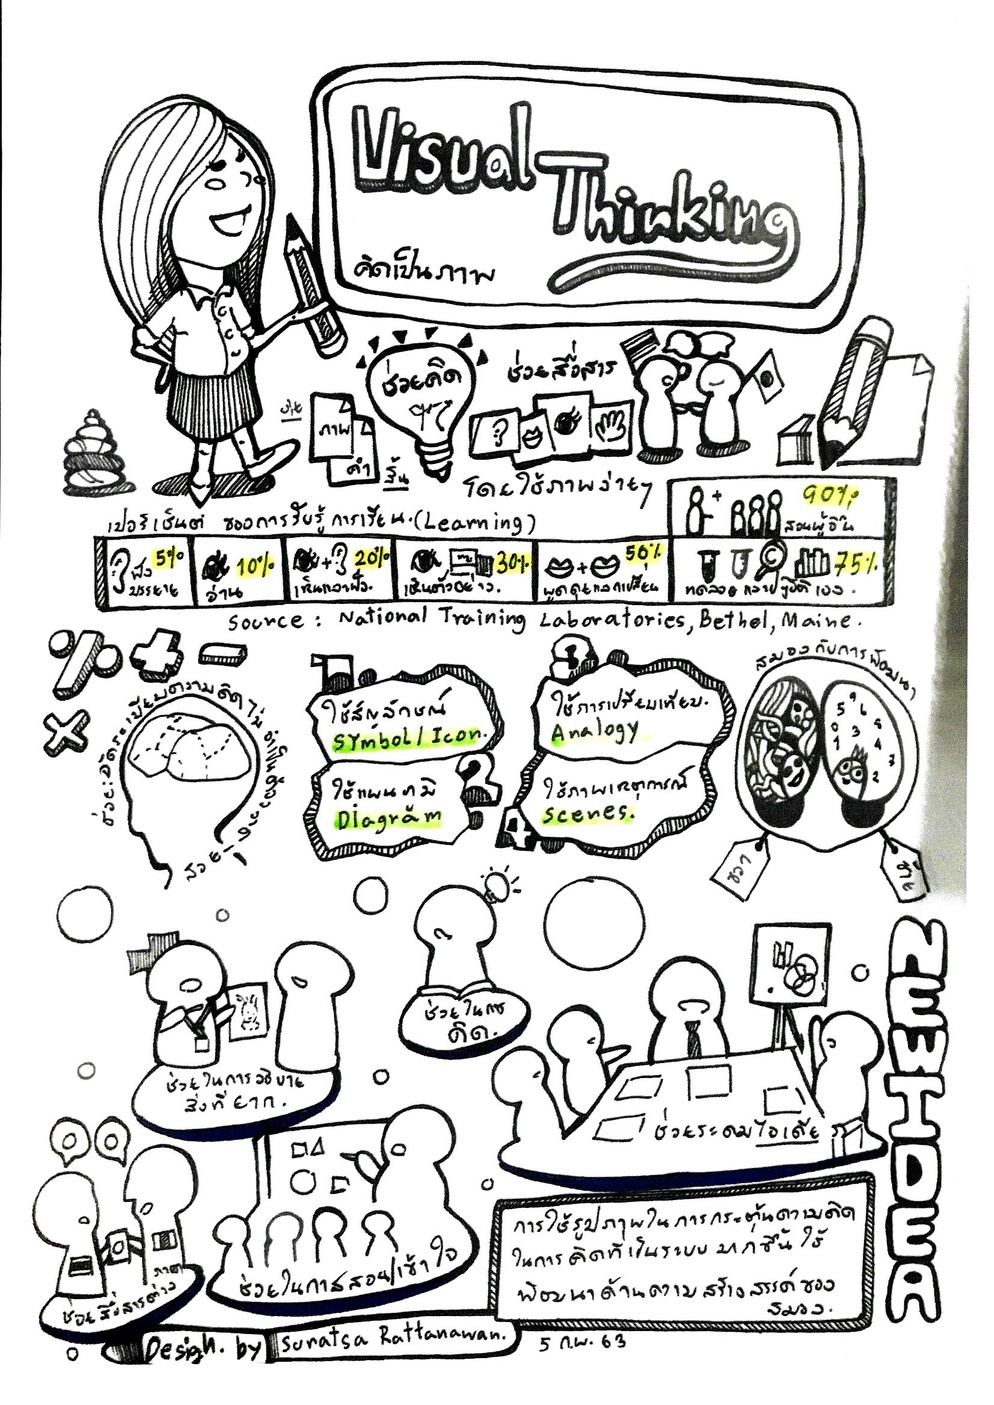 Visual
Thinking
คิดเป็นภาพ
ช่วยคิด
ช่วยสื่อสาร
ภาพ
คำ
สั้น
?
โดยใช้ภาพง่ายๆ
เปอร์เซ็นต์ ของการรับรู้ การเรียน.(Learning)
+ 90%
สอนผู้อื่น
ฟัง 5%
บรรยาย
10%
อ่าน
+ 20%
เห็นและฟัง.
30%
เห็นตัวอย่าง.
+ 50%
พูดคุยแลกเปลี่ยน
75%
ทดลอง และปฏิบัติเอง.
Source : National Training Laboratories, Bethel, Maine.
% + -
x
ช่วยจัดระเบียบความคิด ไม่จำเป็นต้องวาด
สวย
1
ใช้สัญลักษณ์
Symbol/Icon.
2
ใช้แผนภูมิ
Diagram
3
ใช้การเปรียบเทียบ.
Analogy
4
ใช้ภาพเหตุการณ์
Scenes.
สมองกับการพัฒนา
ขวา
ซ้าย
NEW IDEA
ช่วยในการอธิบาย
สิ่งที่ยาก.
ช่วยในการ
คิด.
ช่วยระดมไอเดีย
ภาษา
ช่วยสื่อสารต่าง
ช่วยในการสอน/เข้าใจ
การใช้รูปภาพในการกระตุ้นความคิด
ในการคิดที่เป็นระบบมากขึ้น ใช้
พัฒนาด้านความสร้างสรรค์ของ
สมอง.
Design. by Suratsa Rattanawan.
5 ก.พ. 63